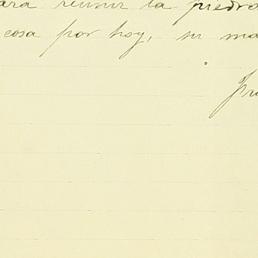 ara reunir la piedra
cosa por hoy, su ma